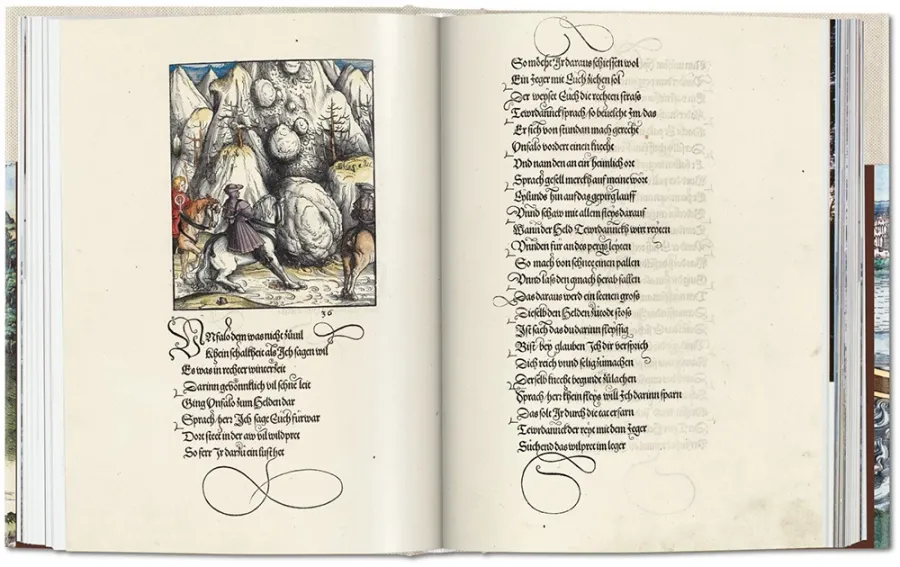 36
Unfalo dem was nicht zůuil
Khein schalkheit als Ich sagen wil
Es was in rechter winterzeit
Darinn gewönnlich vil schne leit
Ging Unfalo zum Helden dar
Sprach herr Ich sage Euch fürwar
Dort steet in der aw vil wildpret
So ferr Ir dartzů ein lust het
So mögt Ir daraus schiessen wol
Ein Jeger mit Euch ziehen sol
Der weyset Euch die rechten strass
Tewrdannck sprach so beuelcht Im das
Er sich von stundan mach gerecht
Unfalo vordert einen knecht
Und nam den an ein heimlich ort
Sprach gesell merckh auf meine wort
hin auf das gepirg lauff
Unnd schaw mit allem fleys darauf
Wann der Held Tewrdannckh wirt reyten
Unnden für an des pergs leyten
So mach von schnee einen pallen
Unnd lass den gmach herab fallen
Das daraus werd ein leenen gross
Dieselb den Helden zůtodt stoss
Ist sach das du darinn fleyssig
Bist bey glauben Ich dir versprich
Dich reich unnd selig zůmachen
Derselb knecht begundt zůlachen
Sprach herr khein fleys will Ich darinn sparn
Das solt Ir durch die tat erfarn
Tewrdannck der reyt mit dem Jeger
Sůchend das wilpret im leger